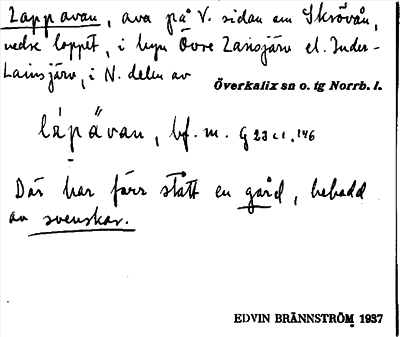 Lappavan, ava på V. sidan om Skrövån,
nedre loppet, i byn Övre Lansjärv el. Inder-
Lainsjärv, i N. delen av
Överkalix sn o. tg Norrb. l.
läpävan, bf. m. G 23 c 1, 146
Där har förr stått en gård, bebodd
av svenskar.
EDVIN BRÄNNSTRÖM 1937